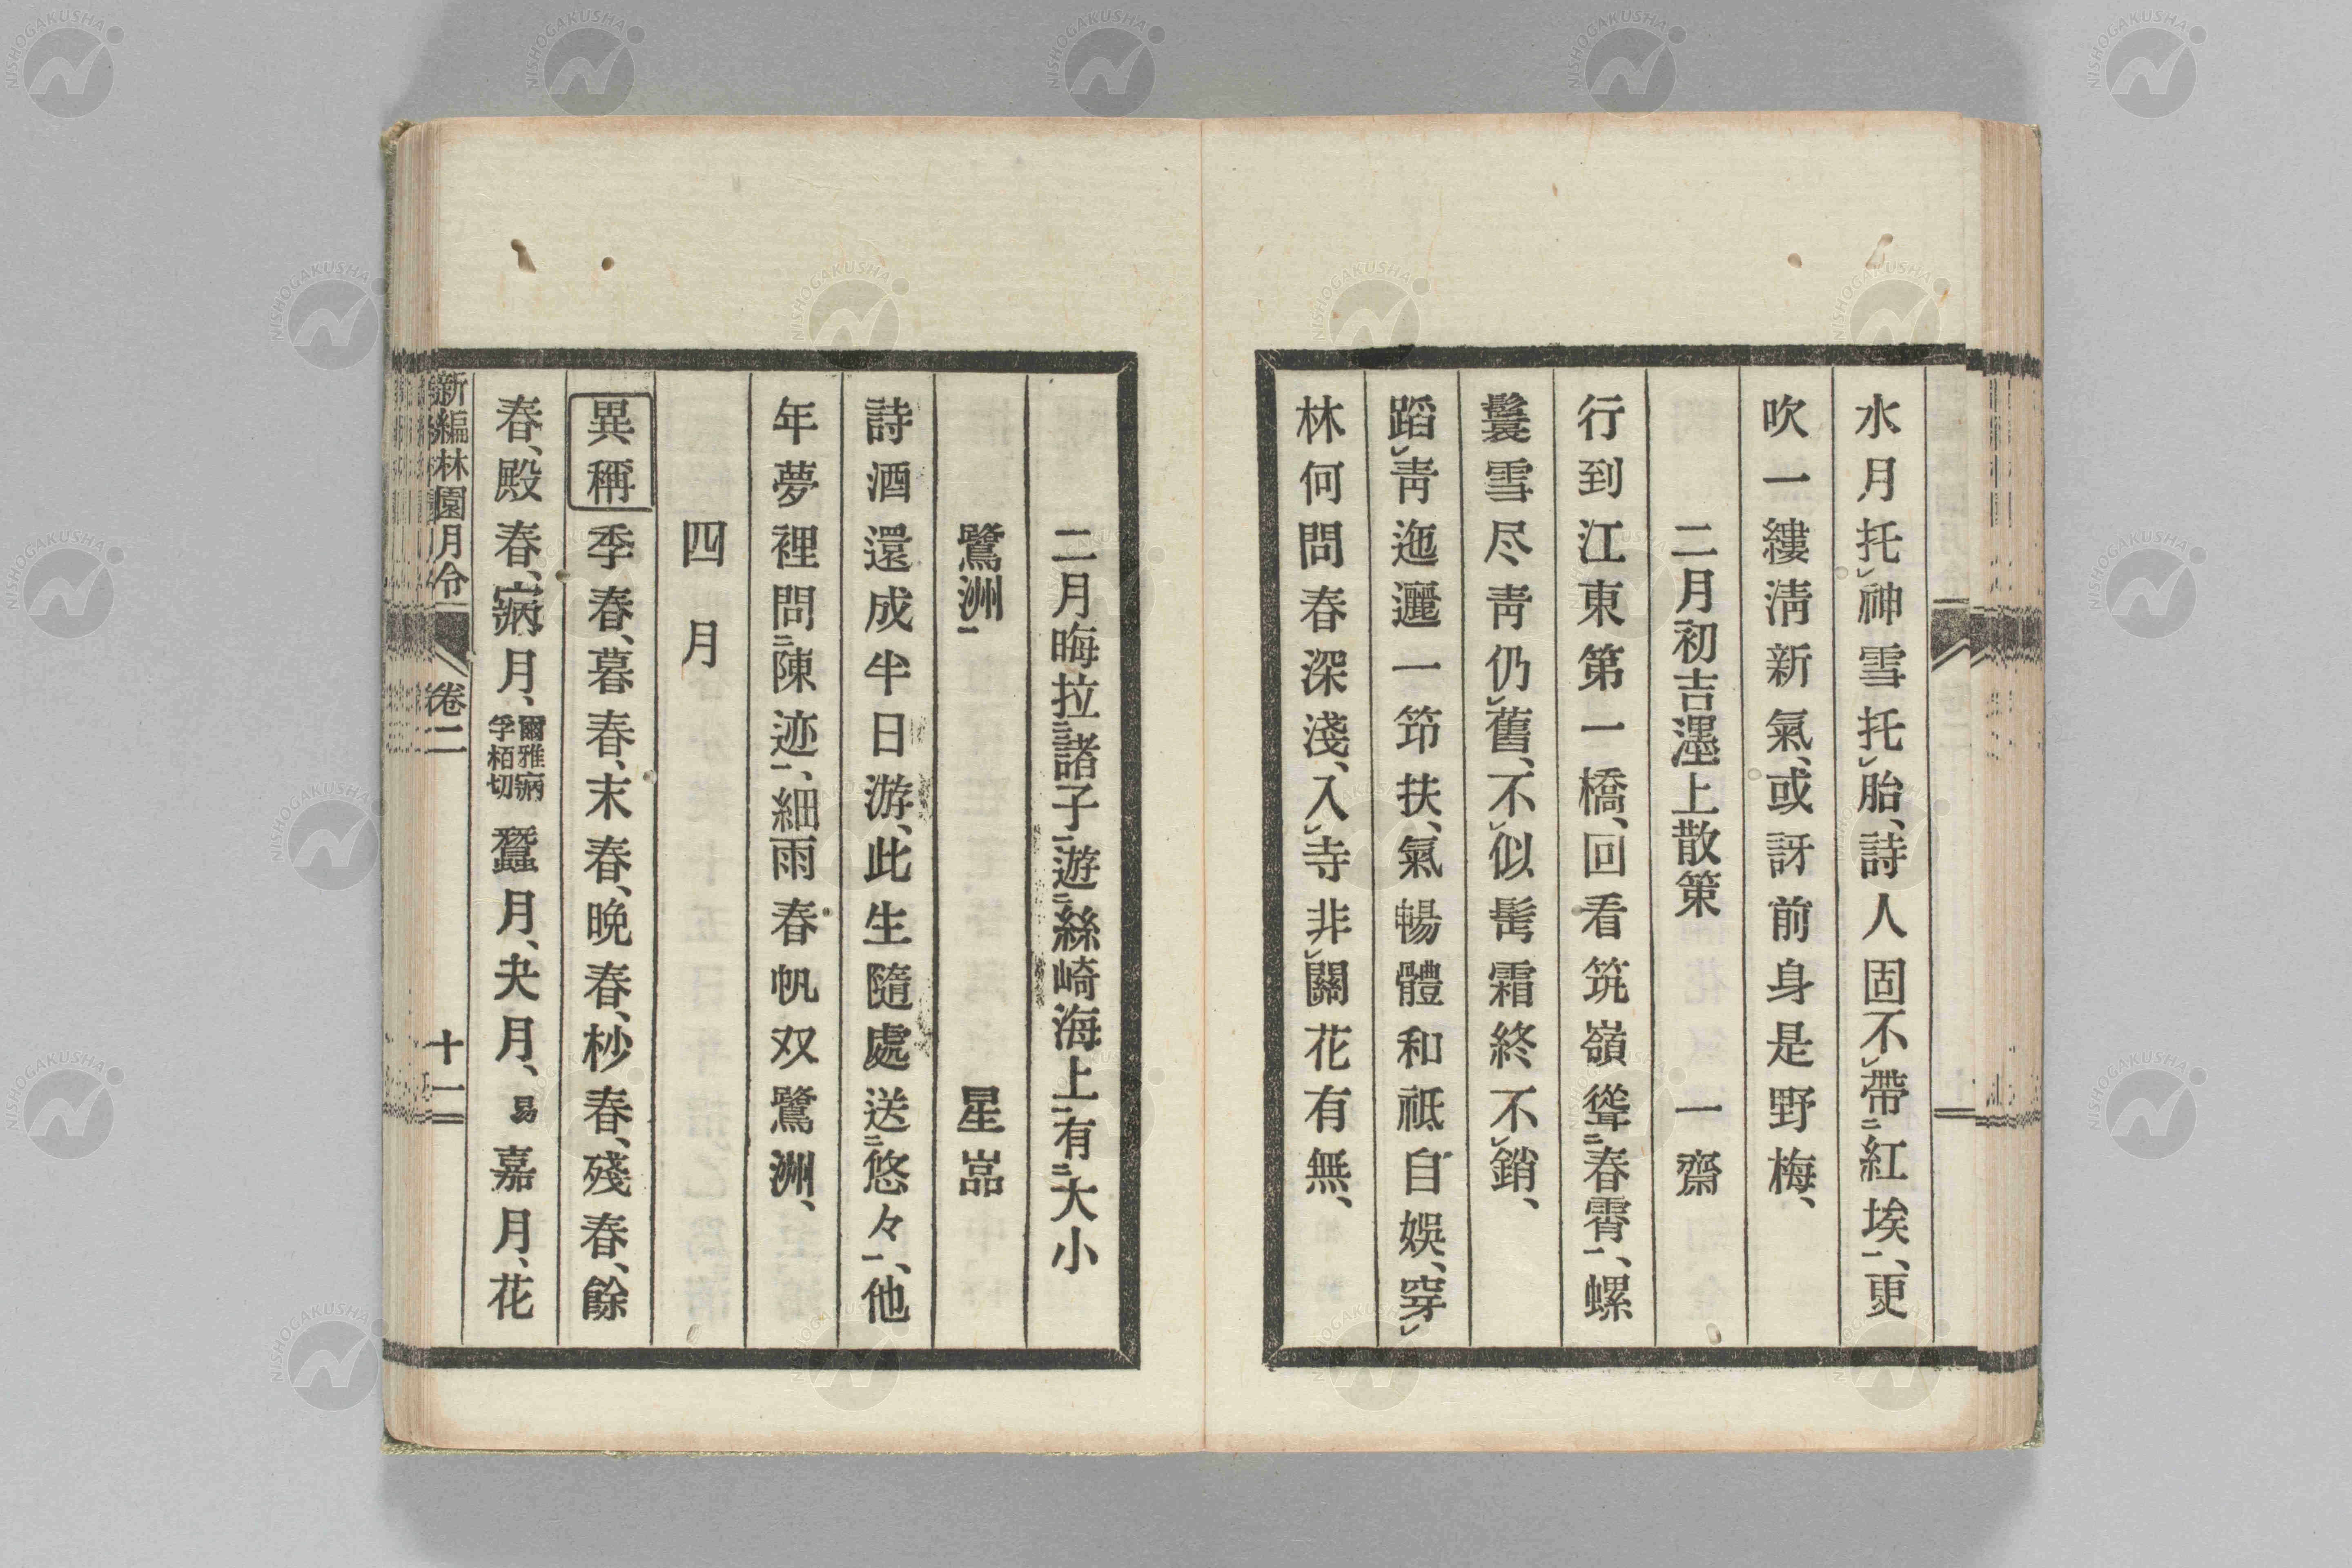 水月托㆑神雪托㆑胎、詩人固不㆑帶㆓紅埃㆒、更
吹一縷淸新氣、或訝前身是野梅、
二月初吉墨上散策　一齋
行到江東第一橋、回看筑嶺聳㆓春霄㆒、螺
鬟雪尽靑仍㆑舊、不㆑似髩霜終不㆑銷、
蹈㆑靑迤邐一筇扶、氣暢體和祗自娛、穿㆑
林何問春深淺、入㆑寺非㆑關花有無、
二月晦拉㆓諸子㆒遊㆓絲崎海上㆒有㆓大小
鷺洲㆒　星嵓
詩酒還成半日游、此生隨處送㆓悠々㆒、他
年夢裡問㆓陳迹㆒、細雨春帆双鷺洲、
四月
異稱　季春、暮春、末春、晩春、杪春、殘春、餘
春、殿春、寎月、爾雅寎孚栢切　蠶月、夬月、易　嘉月、花
新編林園月令　卷二　十一
NISHOGAKUSHA